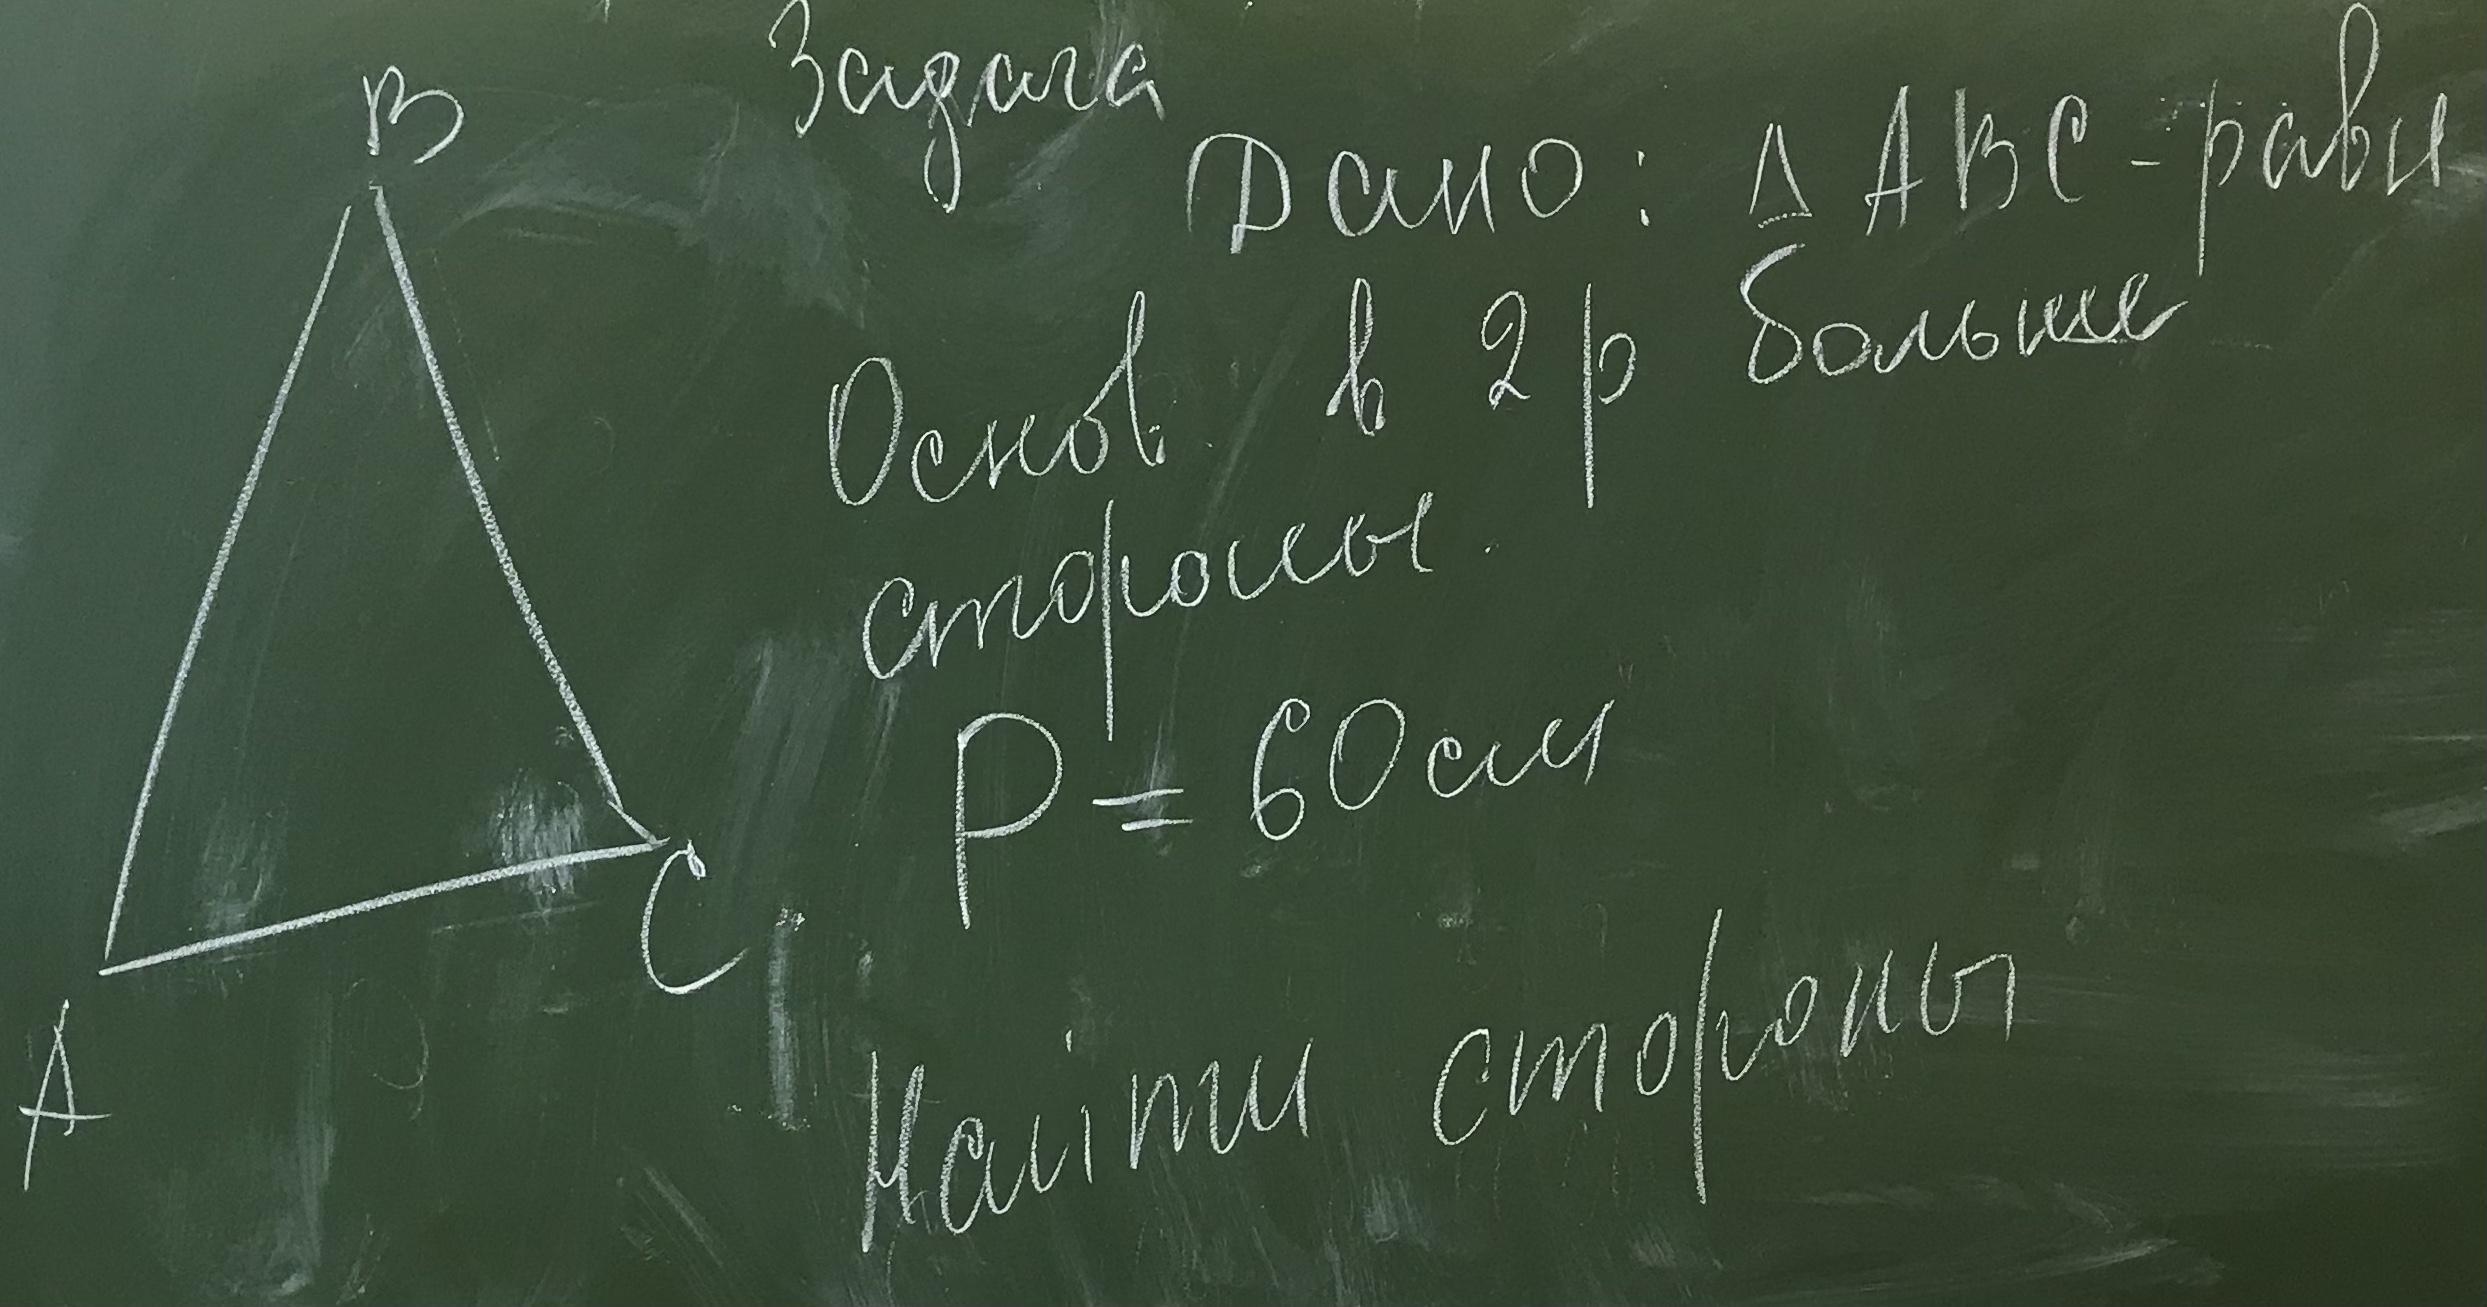 Задача
Дано: Δ ABC - равн
Основ. в 2 р больше
стороны.
P = 60 см
Найти стороны
B
C
A